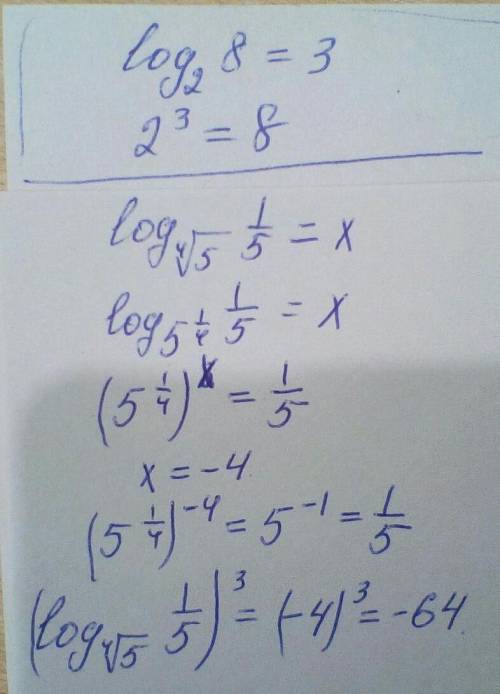 log₂ 8 = 3
2³ = 8
log_{∜5} 1/5 = x
log_{5^{1/4}} 1/5 = x
(5^{1/4})^x = 1/5
x = -4
(5^{1/4})^{-4} = 5^{-1} = 1/5
(log_{∜5} 1/5)³ = (-4)³ = -64